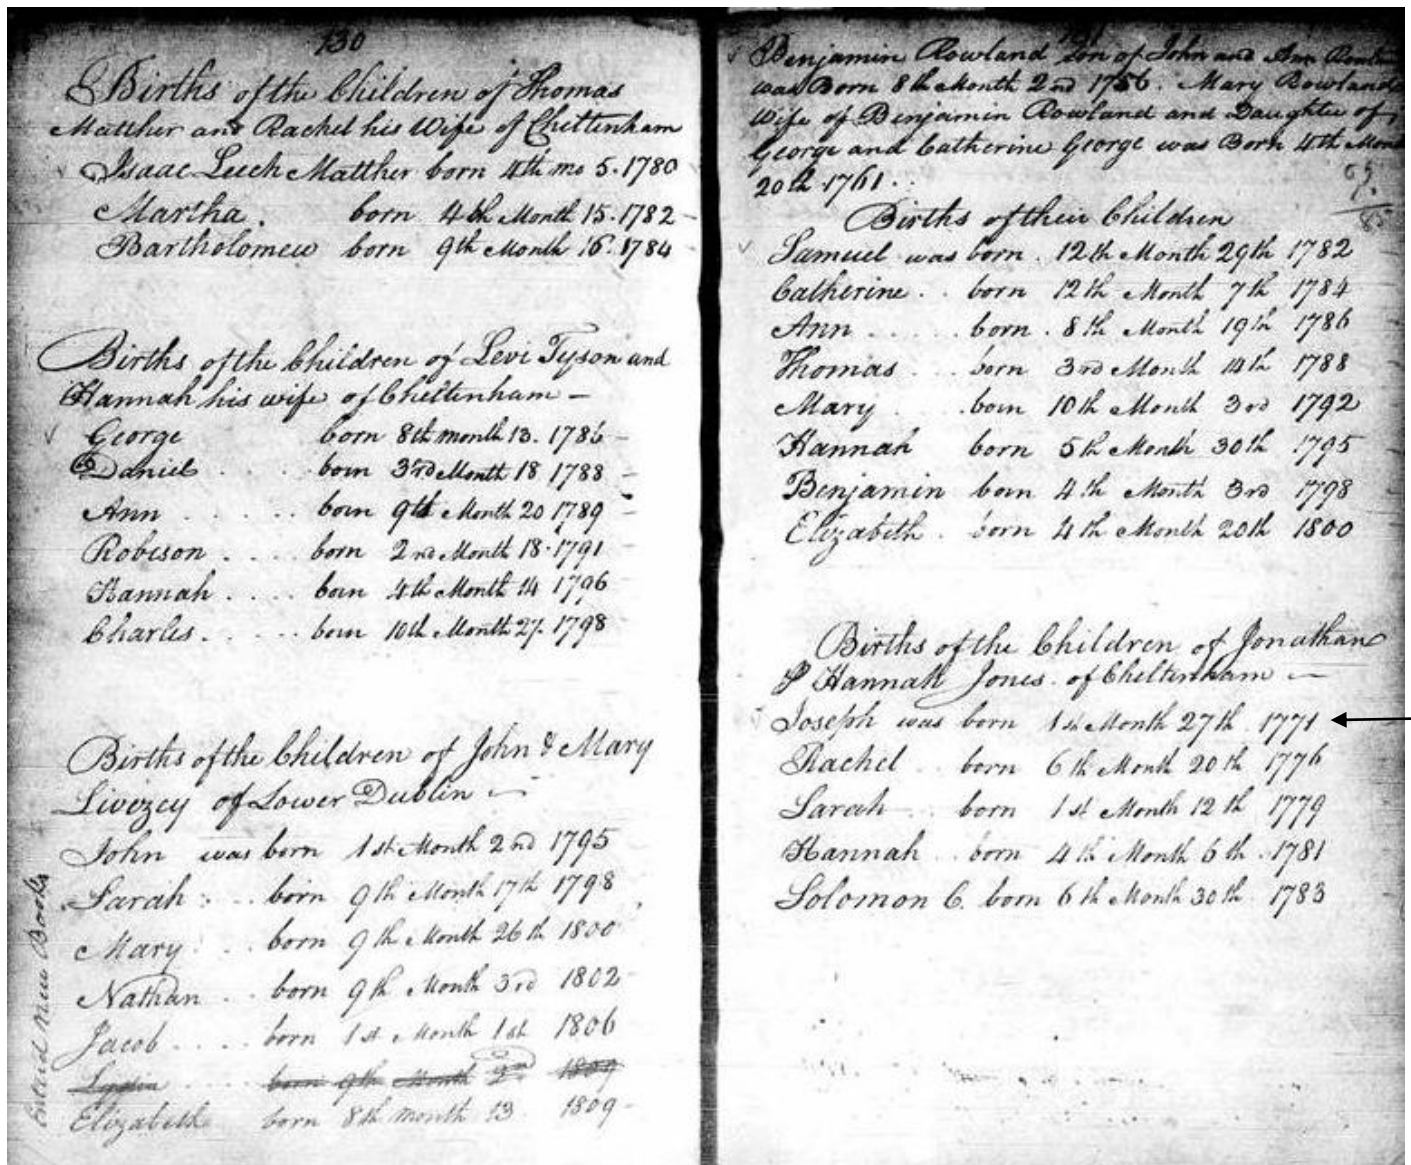 130
Births of the Children of Thomas
Matther and Rachel his Wife of Cheltenham
Isaac Leech Matther born 4th mo 5. 1780
Martha. born 4th Month 15. 1782 -
Bartholomew born 9th Month 16. 1784
Births of the Children of Levi Tyson and
Hannah his wife of Cheltenham -
George born 8th month 13. 1786 -
Daniel . . . born 3rd Month 18 1788 -
Ann . . . . . born 9th Month 20 1789 -
Robeson . . . . born 2nd Month 18. 1791 -
Hannah . . . . born 4th Month 14 1796
Charles . . . . . born 10th Month 27. 1798
Births of the Children of John & Mary
Livezey of Lower Dublin -
John was born 1st Month 2nd 1795
Sarah . . . born 9th Month 17th 1798
Mary . . . born 9th Month 26th 1800
Nathan . . born 9th Month 3rd 1802
Jacob . . . . born 1st Month 1st 1806
born 9th Month 2nd 1809
Elizabeth born 8th month 13 1809 -
New Book
Benjamin Rowland Son of John and Ann
was Born 8th Month 2nd 1756. Mary Rowland
Wife of Benjamin Rowland and Daughter of
George and Catherine George was Born 4th
20th 1761.
Births of their Children
Samuel was born . 12th Month 29th 1782
Catherine . . born 12th Month 7th 1784
Ann . . . . . born . 8th Month 19th 1786
Thomas . . born 3rd Month 14th 1788
Mary . . born 10th Month 3rd 1792
Hannah born 5th Month 30th 1795
Benjamin born 4th Month 3rd 1798
Elizabeth . born 4th Month 20th 1800
Births of the Children of Jonathan
& Hannah Jones. of Cheltenham -
Joseph was born 1st Month 27th 1771
Rachel . . born 6th Month 20th 1776
Sarah . . born 1st Month 12th 1779
Hannah . . born 4th Month 6th 1781
Solomon C. born 6th Month 30th 1783